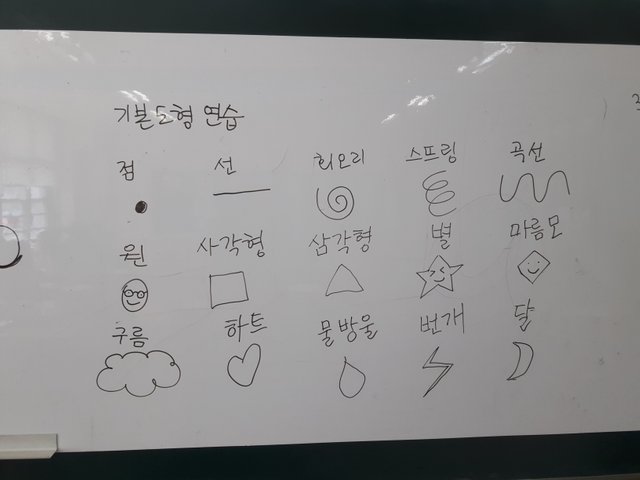 기본도형 연습
점 선 회오리 스프링 곡선
원 사각형 삼각형 별 마름모
구름 하트 물방울 번개 달